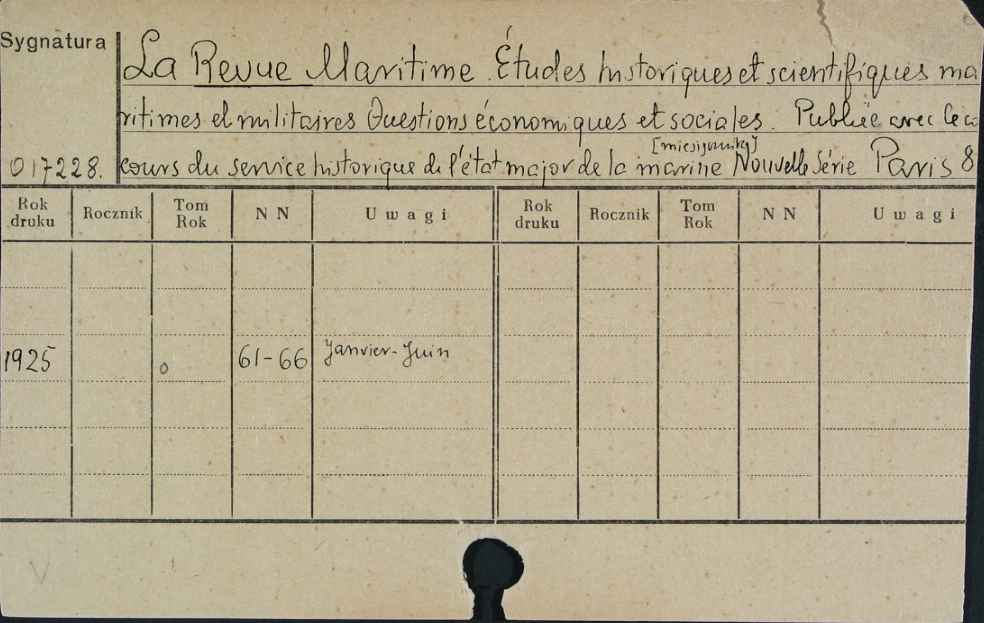 Sygnatura
La Revue Maritime. Études historiques et scientifiques ma
ritimes et militaires Questions économiques et sociales. Publiée avec le con
017228.
cours du service historique de l'état major de la marine [miesięczny] Nouvelle Série Paris 8
Rok druku Rocznik Tom Rok N N Uwagi Rok druku Rocznik Tom Rok N N Uwagi
1925 o 61-66 Janvier-Juin
V